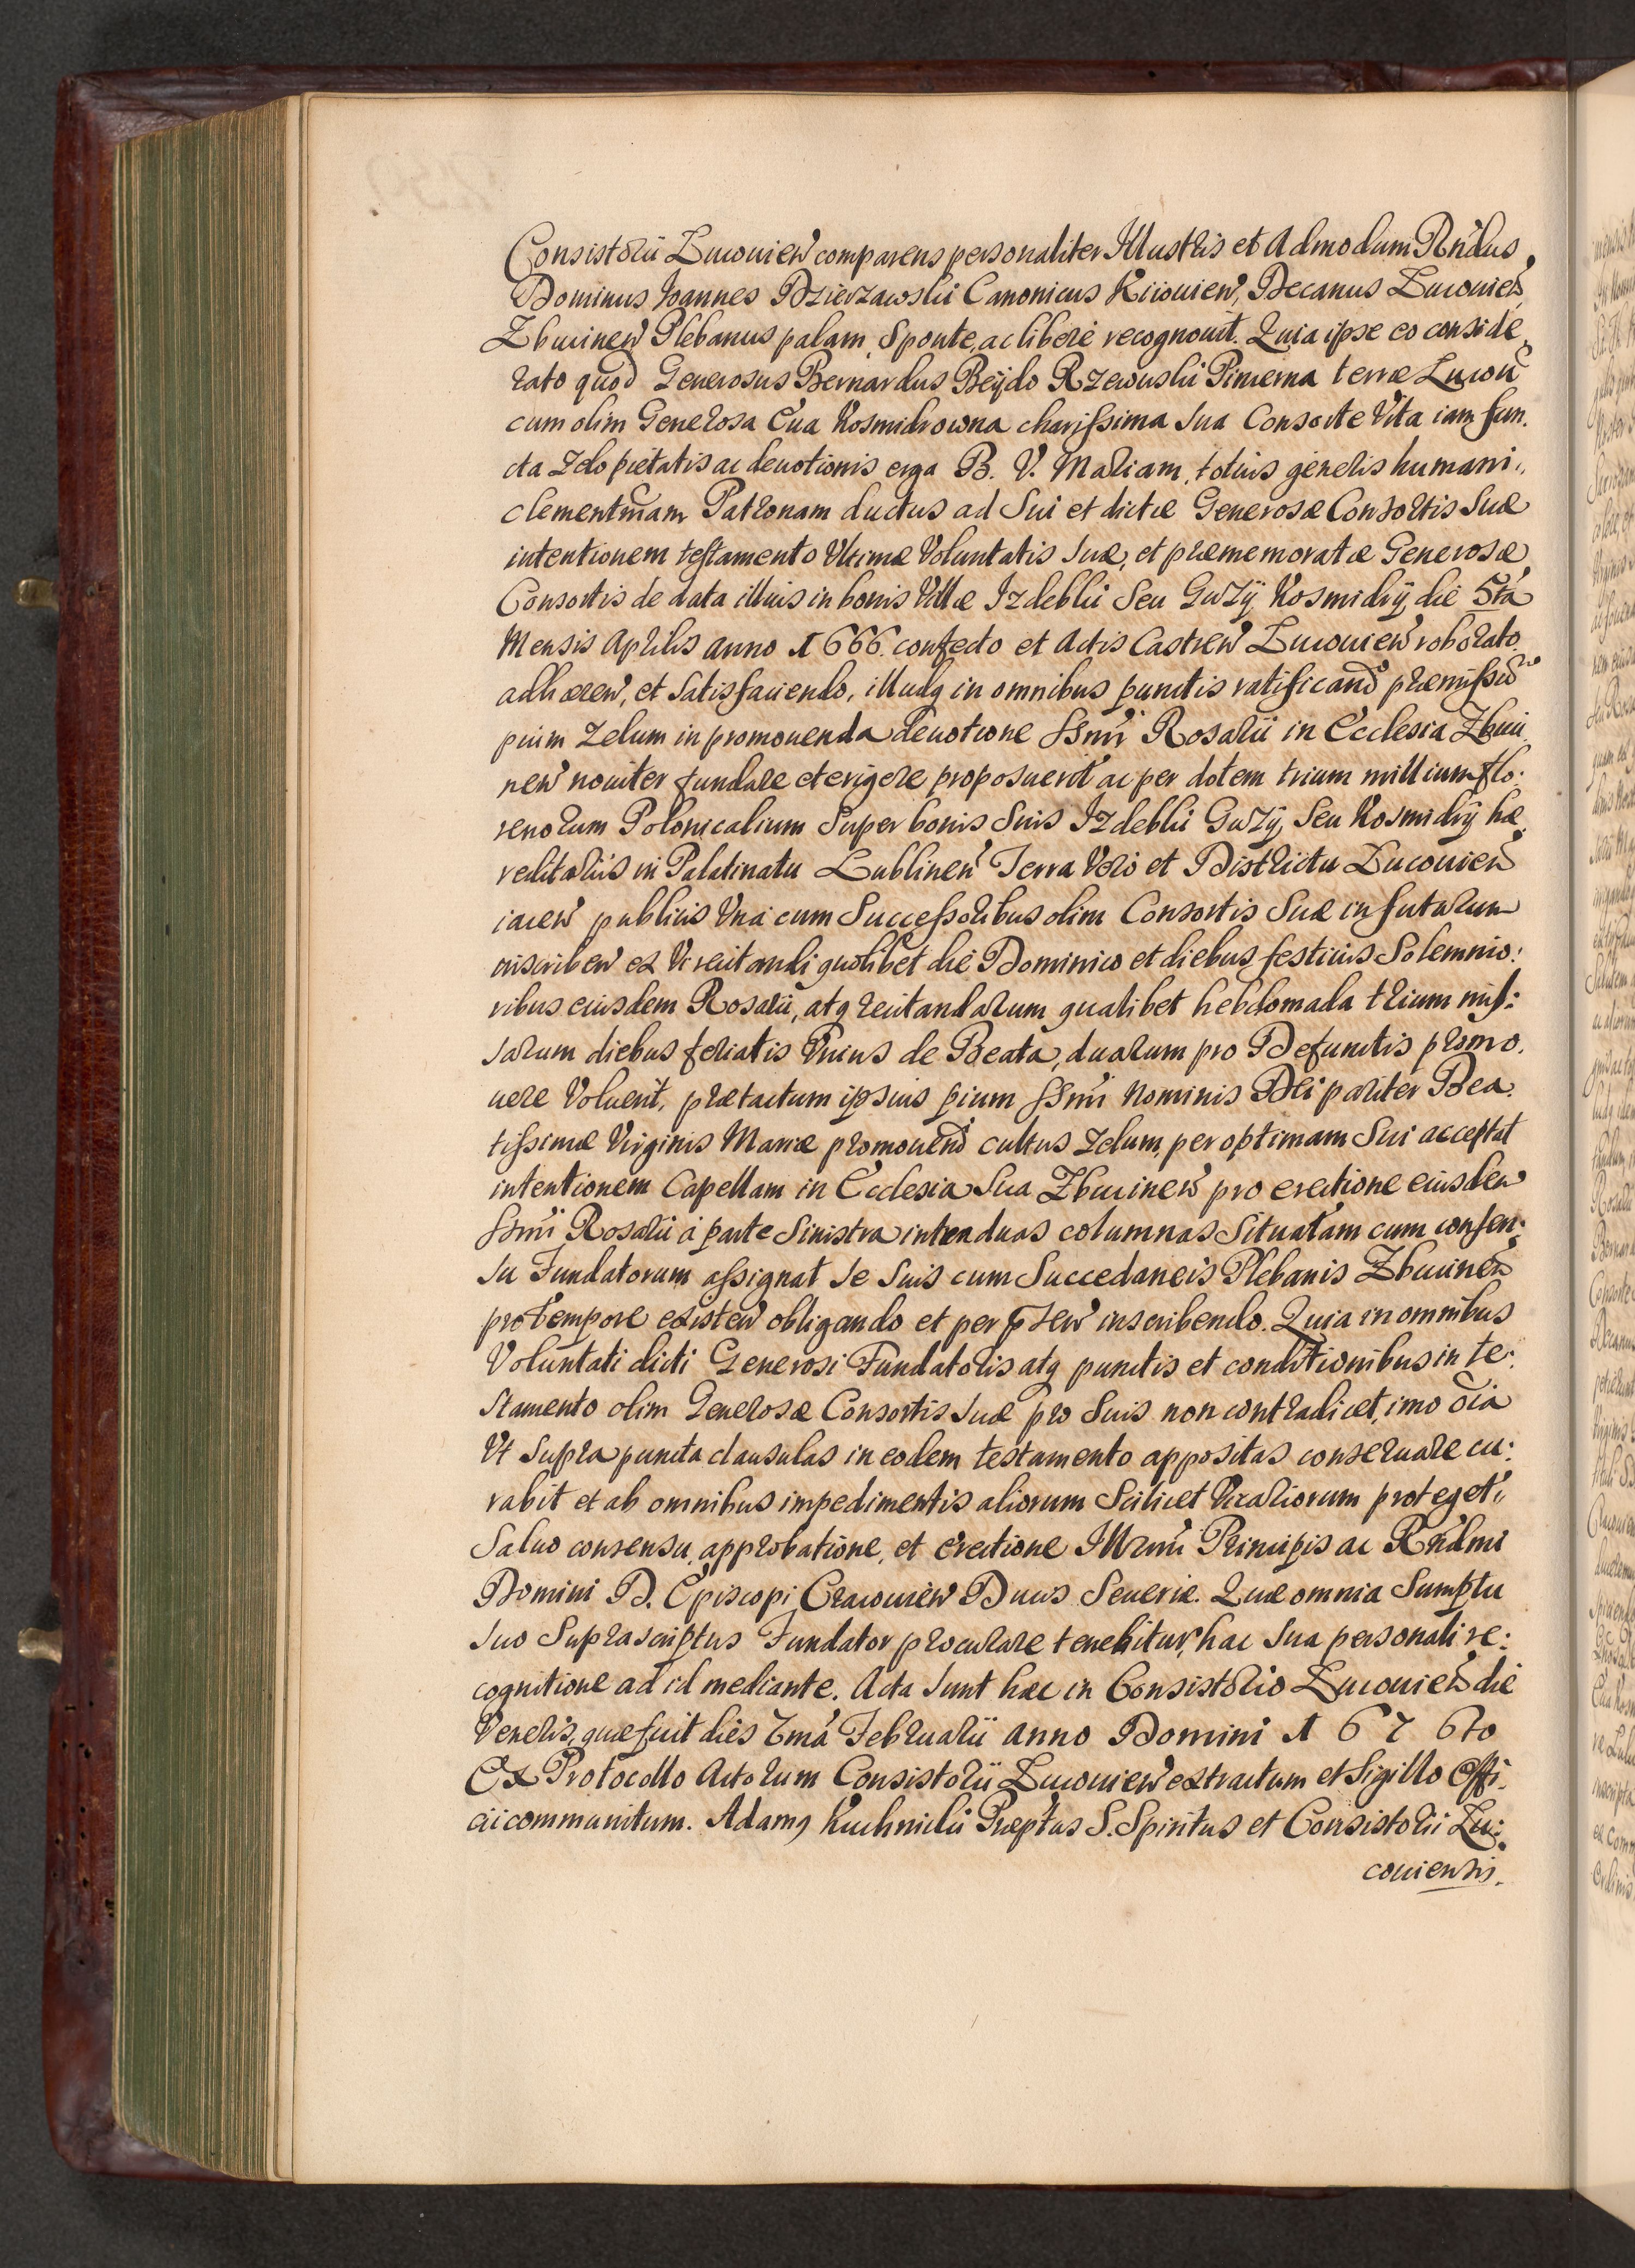 Consistorii Lucouien comparens personaliter Illustris et Admodum Rndus
Dominus Joannes Dzierzawski Canonicus Kiiouien, Decanus Lucouien
Zbucinen Plebanus palam, Sponte, ac libere recognouit. Quia ipse eo conside
rato quod Generosus Bernardus Beydo Rzewuski Pincerna terræ Lucou
cum olim Generosa Eua Kosmidrowna charissima Sua Consorte Vita iam fun
cta Zelo pietatis ac deuotionis erga B. V. Mariam, totius generis humani
clementmam Patronam ductus ad Sui et dictæ Generosæ Consortis Suæ
intentionem testamento Vltimæ Voluntatis Suæ, et præmemoratæ Generosæ
Consortis de data illius in bonis Villæ Izdebki Seu Guzÿ Kosmidrÿ die 5ta
Mensis Aprilis Anno 1666. confecto et Actis Castren Lucouien roborato
adhæren, et Satisfaciendo, illudq in omnibus punctis ratificand præmissorum
pium Zelum in promouenda deuotione SSmi Rosarii in Ecclesia Zbuci
nen nouiter fundare et erigere proposuerit ac per dotem trium millium flo:
renorum Polonicalium Super bonis Suis Izdebki Guzÿ Seu Kosmidrÿ hæ
reditariis in Palatinatu Lublinen Terra Vero et Districtu Lucouien
iacen publicis Vna cum Successoribus olim Consortis Suæ in futurum
inscriben ex Vi recitandi quolibet die Dominico et diebus festiuis Solemnio:
ribus eiusdem Rosarii, atq recitandarum qualibet hebdomada trium mis:
sarum diebus feriatis Vnius de Beata, duarum pro Defunctis promo
uere Voluerit, prætactum ipsius pium SSmi Nominis Dei pariter Bea
tissimæ Virginis Mariæ promouend cultus Zelum, per optimam Sui acceptat
intentionem Capellam in Ecclesia Sua Zbucinen pro erectione eiusdem
SSmi Rosarii à parte Sinistra intra duas columnas Situatam cum consen:
su Fundatorum assignat Se Suis cum Succedaneis Plebanis Zbucinen
pro tempore existen obligando et per psen inscribendo. Quia in omnibus
Voluntati dicti Generosi Fundatoris atq punctis et conditionibus in te:
stamento olim Generosæ Consortis Suæ pro Suis non contradicet, imo oia
Vt Supra puncta clausulas in eodem testamento appositas conseruare cu:
rabit et ab omnibus impedimentis aliorum Scilicet Vicariorum proteget
Saluo consensu, approbatione, et erectione Illrmi Principis ac Rndmi
Domini D. Episcopi Cracouien Ducis Seueriæ. Quæ omnia Sumptu
Suo Suprascriptus Fundator procurare tenebitur, hac Sua personali re:
cognitione ad id mediante. Acta Sunt hæc in Consistorio Lucouien die
Veneris, quæ fuit dies 7ma Februarii Anno Domini 1676to
Ex Protocollo Actorum Consistorii Lucouien extractum et Sigillo Offi
cii communitum. Adamq Kuchnicki Præptus S. Spiritus et Consistorii Lu:
couiensis.